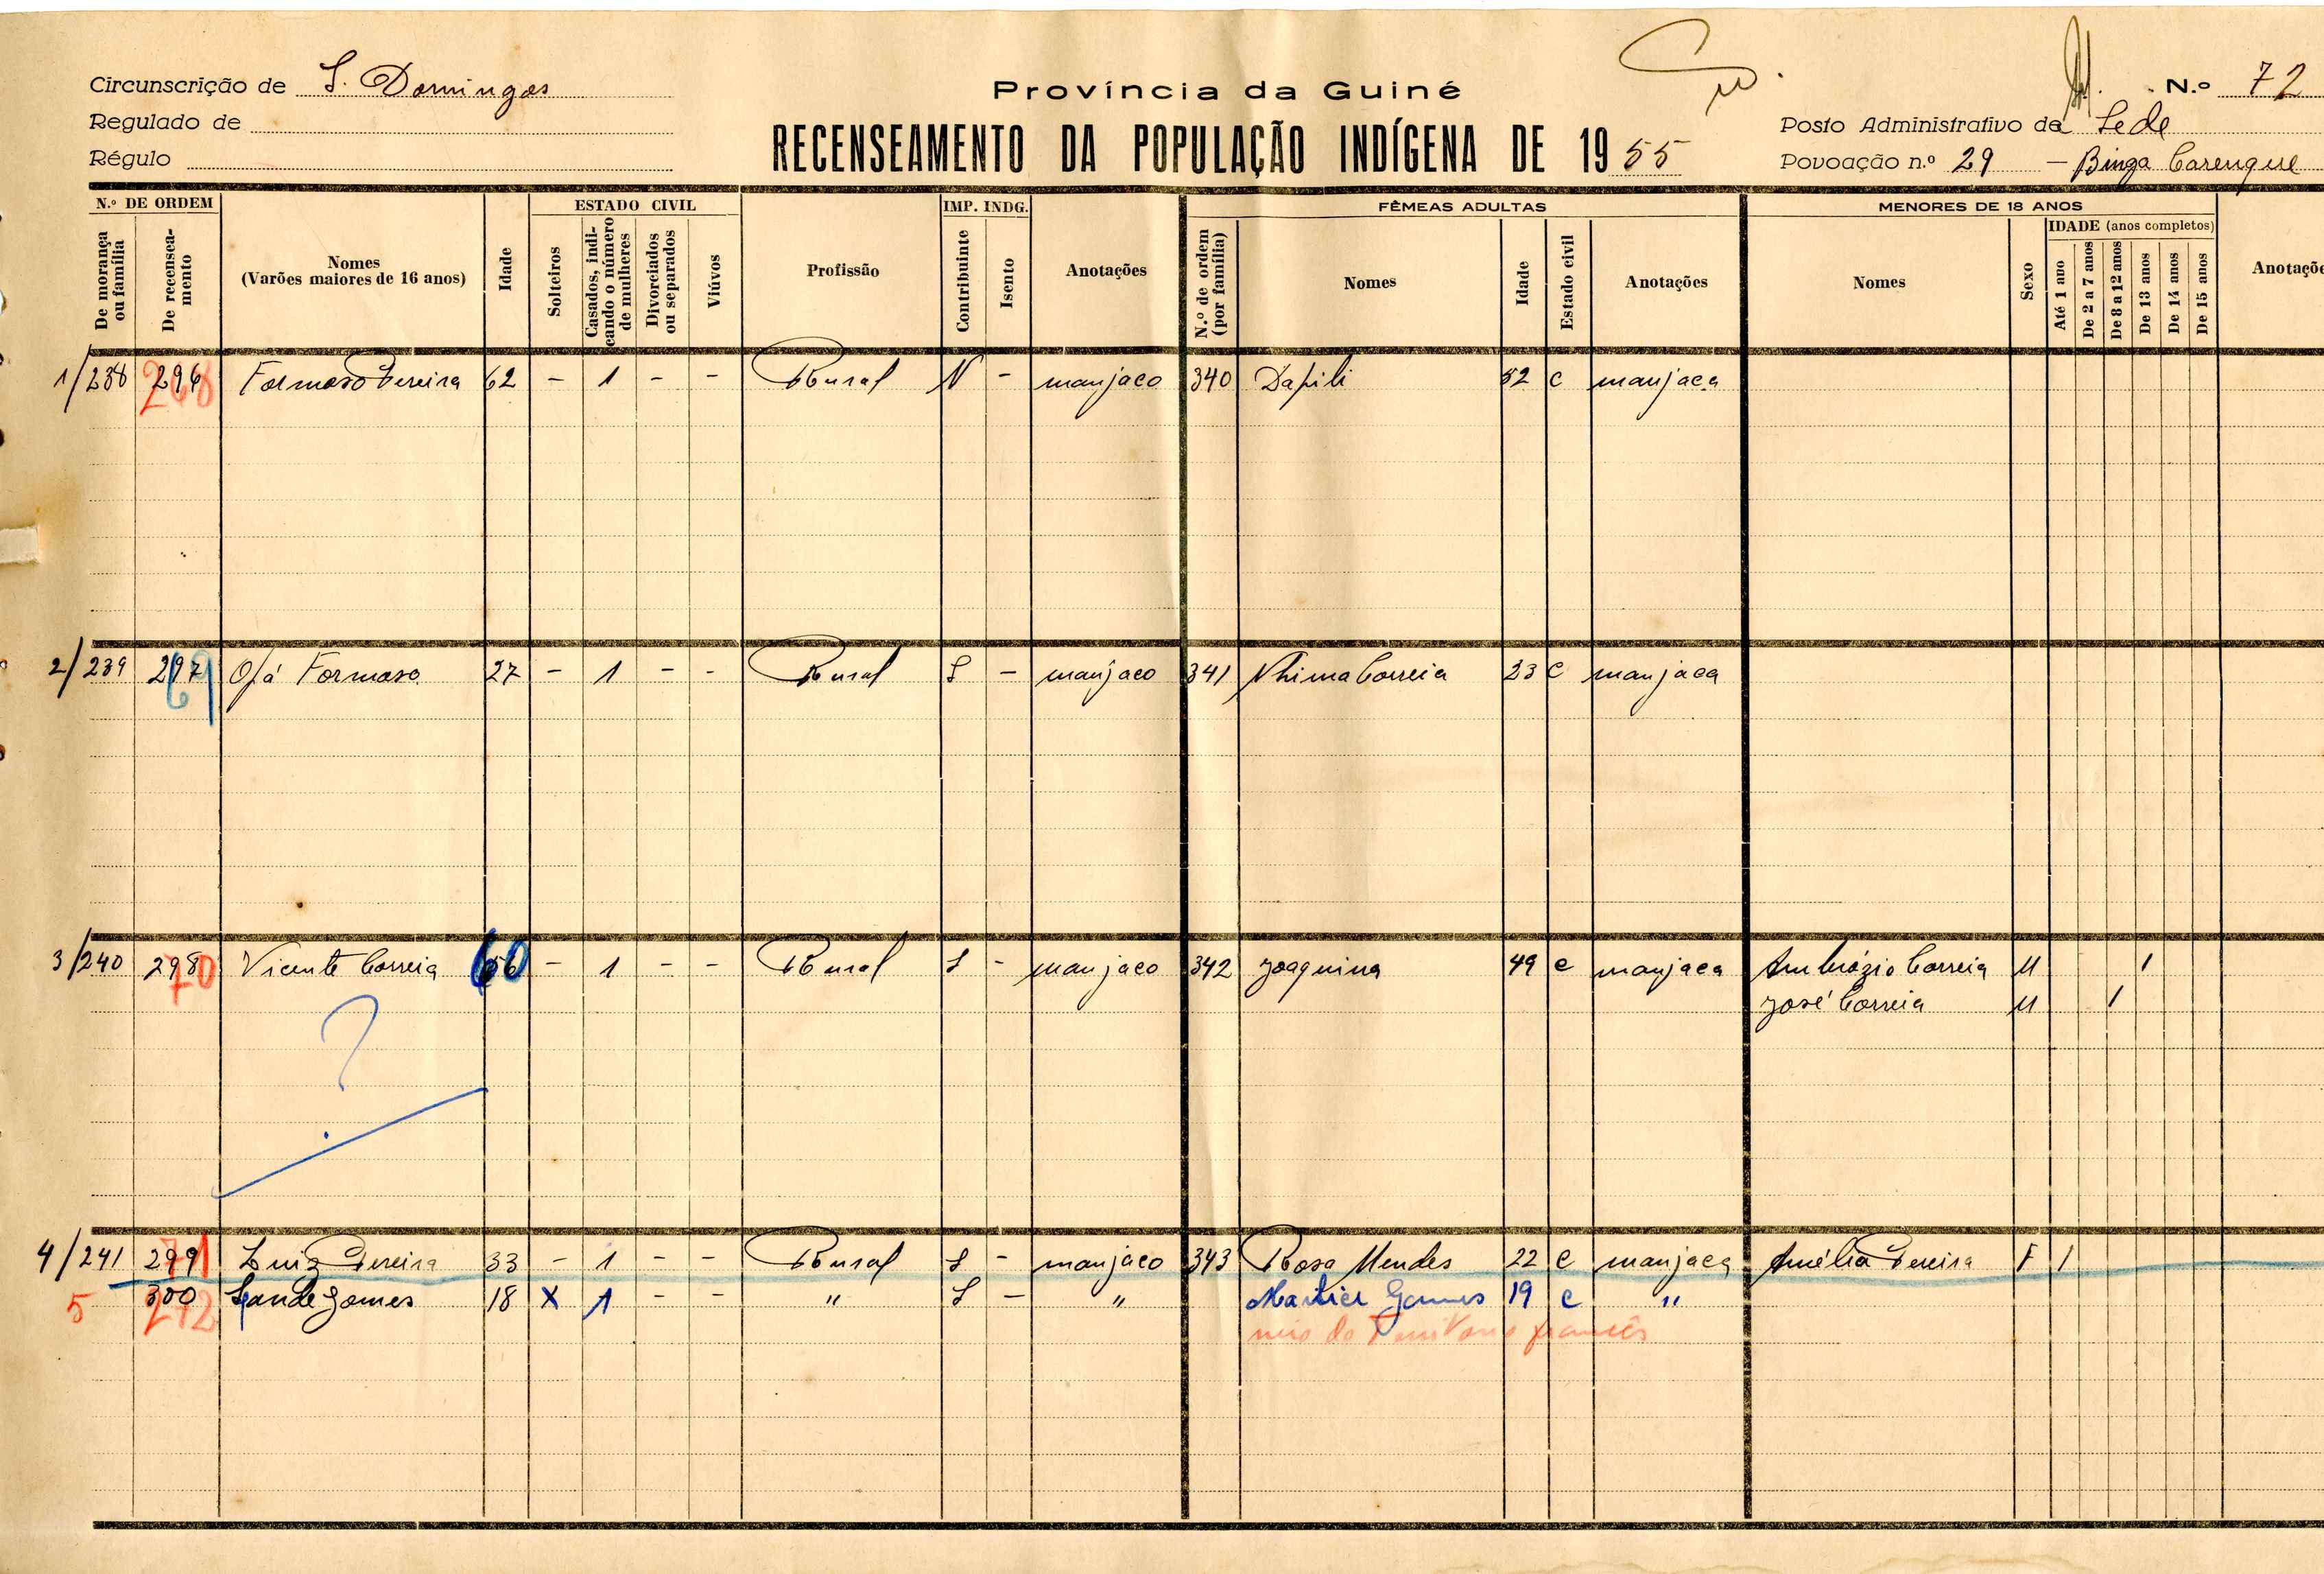 Circunscrição de S. Domingos
Regulado de
Régulo
Província da Guiné
RECENSEAMENTO DA POPULAÇÃO INDÍGENA DE 1955
N.º 72
Posto Administrativo da Sede
Povoação n.º 29 — Binga Carenque
N.º DE ORDEM
De morança ou família
De recenseamento
Nomes
(Varões maiores de 16 anos)
Idade
ESTADO CIVIL
Solteiros
Casados, indicando o número de mulheres
Divorciados ou separados
Viúvos
Profissão
IMP. INDG.
Contribuinte
Isento
Anotações
FÊMEAS ADULTAS
N.º de ordem (por família)
Nomes
Idade
Estado civil
Anotações
MENORES DE 18 ANOS
Nomes
Sexo
IDADE (anos completos)
Até 1 ano
De 2 a 7 anos
De 8 a 12 anos
De 13 anos
De 14 anos
De 15 anos
Anotaçõe
1/238 296 268 Formoso Pereira 62 - 1 - - Rural N - manjaco 340 Dapili 52 c manjaca
2/239 297 69 Ofá Formoso 27 - 1 - - Rural S - manjaco 341 Nhima Correia 23 c manjaca
3/240 298 70 Vicente Correia 60 - 1 - - Rural S - manjaco 342 Joaquina 49 c manjaca Ambrózio Correia M 1
José Correia M 1
?
4/241 299 71 Luiz Pereira 33 - 1 - - Rural S - manjaco 343 Rosa Mendes 22 c manjaca Amélia Pereira F 1
5 300 272 Lande Gomes 18 X 1 - - " S - " Gomes 19 c "
francês